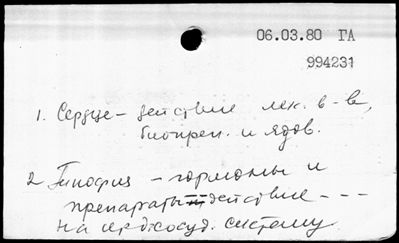 06.03.80 ГА
994231
1. Сердце – действие лек. в-в,
биопреп. и ядов.
2 Гипофиз – гормоны и
препараты действие - - -
на сердсосуд. систему